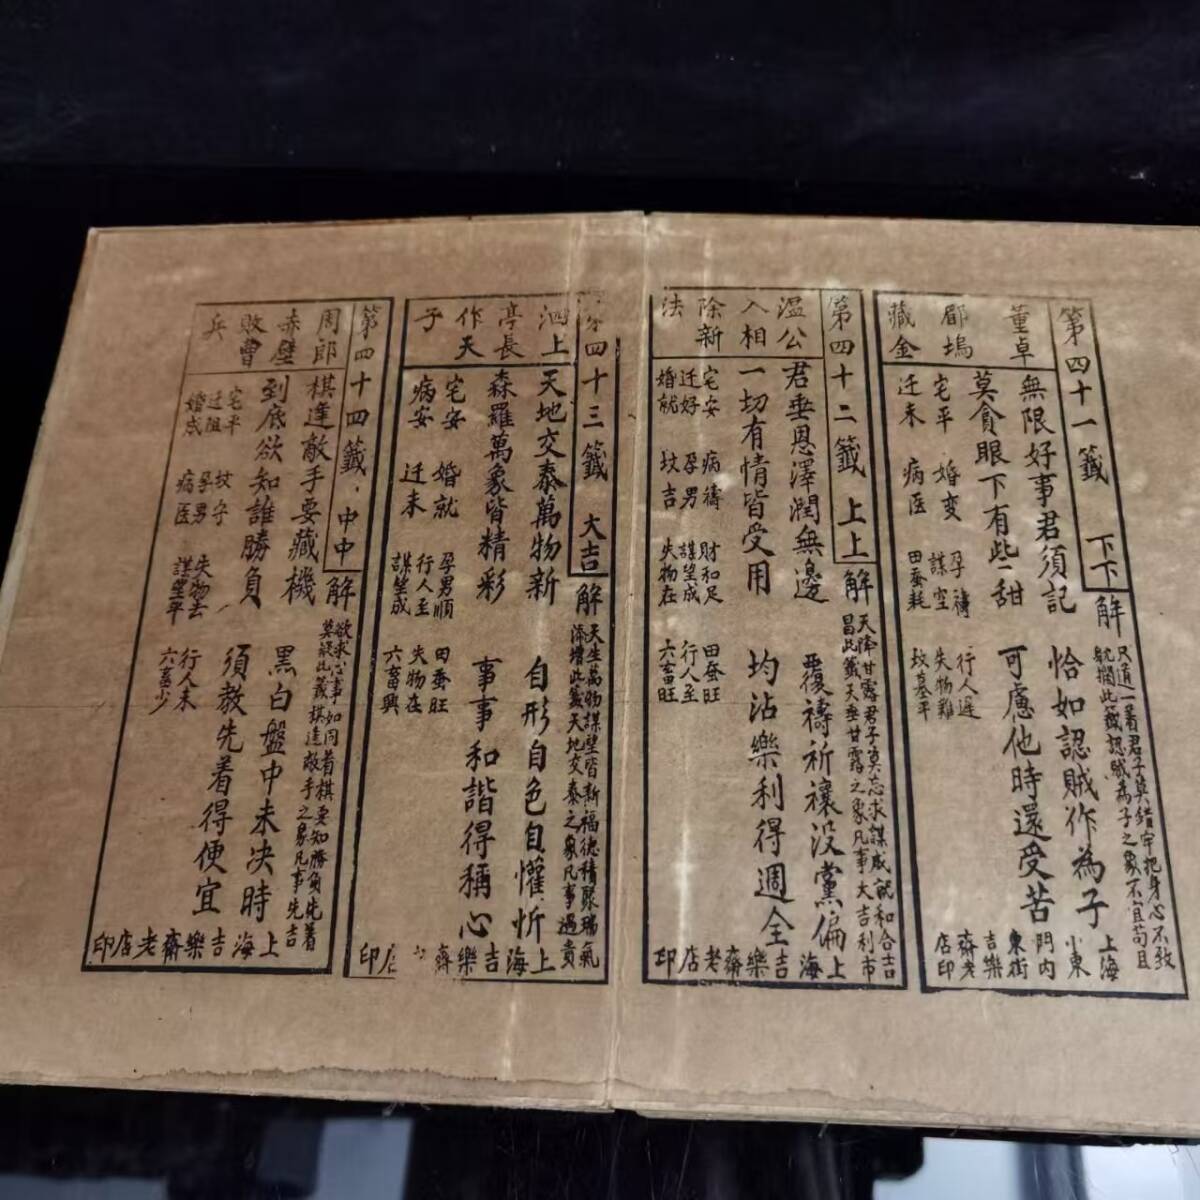 第四十一籤 下下
董卓
郿塢
藏金
無限好事君須記
恰如認賊作為子
莫貪眼下有些甜
可慮他時還受苦
宅平 婚变 孕禱 行人遲
迁未 病医 謀空 失物難
田蚕耗 坟墓平
解
只道一着君子莫錯牢把身心不致
此籤認賊為子之象不宜苟且
上海
小東
門内
東街
吉樂
齋老
店印
第四十二籤 上上
溫公
入相
除新
法
君垂恩澤潤無邊
覆禱祈禳没黨偏
一切有情皆受用
均沾樂利得週全
宅安 病禱 財和足 田蚕旺
迁好 孕男 謀望成 行人至
婚就 坟吉 失物在 六畜旺
解
天降甘露君子莫忘求謀成就和合吉
昌此籤天垂甘露之象凡事大吉利市
上海吉樂齋老店印
第四十三籤 大吉
泗上
亭長
作天
子
天地交泰萬物新
自形自色自懽忻
森羅萬象皆精彩
事事和諧得稱心
宅安 婚就 孕男順 田蚕旺
病安 迁未 行人至 失物在
謀望成 六畜興
解
天生萬物謀望皆新福德積聚瑞氣
添增此籤天地交泰之象凡事遇貴
上海吉樂齋 店印
第四十四籤 中中
周郎
赤壁
敗曹
兵
棋逢敵手要藏機
黑白盤中未决時
到底欲知誰勝負
須教先着得便宜
宅平 坟守 失物去 行人未
迁阻 孕男 謀望平 六畜少
婚成 病医
解
欲求心事如同着棋要知勝負先着
莫疑此籤棋逢敵手之象凡事先吉
上海吉樂齋老店印